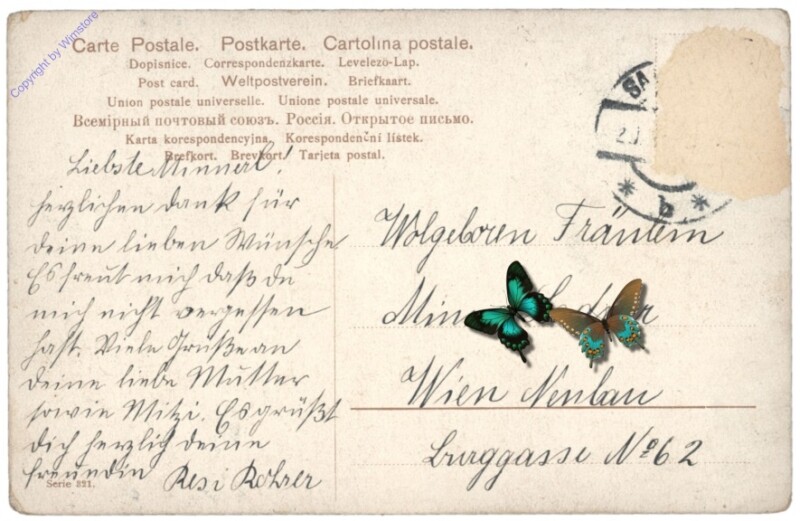 Copyright by Wimstore
Carte Postale. Postkarte. Cartolina postale.
Dopisnice. Correspondenzkarte. Levelezö-Lap.
Post card. Weltpostverein. Briefkaart.
Union postale universelle. Unione postale universale.
Всемірный почтовый союзъ. Россія. Открытое письмо.
Karta korespondencyjna. Korespondenční lístek.
Brefkort. Brevkort. Tarjeta postal.
Liebste Minnerl!
herzlichen dank für
deine lieben Wünsche
Es freut mich daß du
mich nicht vergessen
hast. Viele Grüße an
deine liebe Mutter
sowie Mitzi. Es grüßt
dich herzlich deine
freundin Resi Rohrer
Serie 321.
SA
b
Wolgeboren Fräulein
Wien Neubau
Burggasse No 62